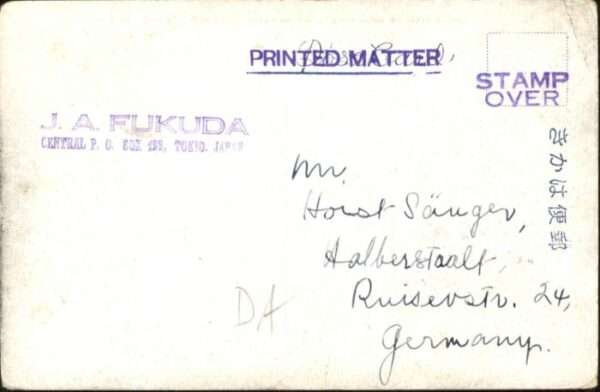 Post Card,
PRINTED MATTER
STAMP
OVER
J. A. FUKUDA
CENTRAL P. O. BOX 199, TOKIO. JAPAN
きかは便郵
Mr.
Horst Sänger,
Halberstaalt,
Ruisevstr. 24,
Germany.
DA